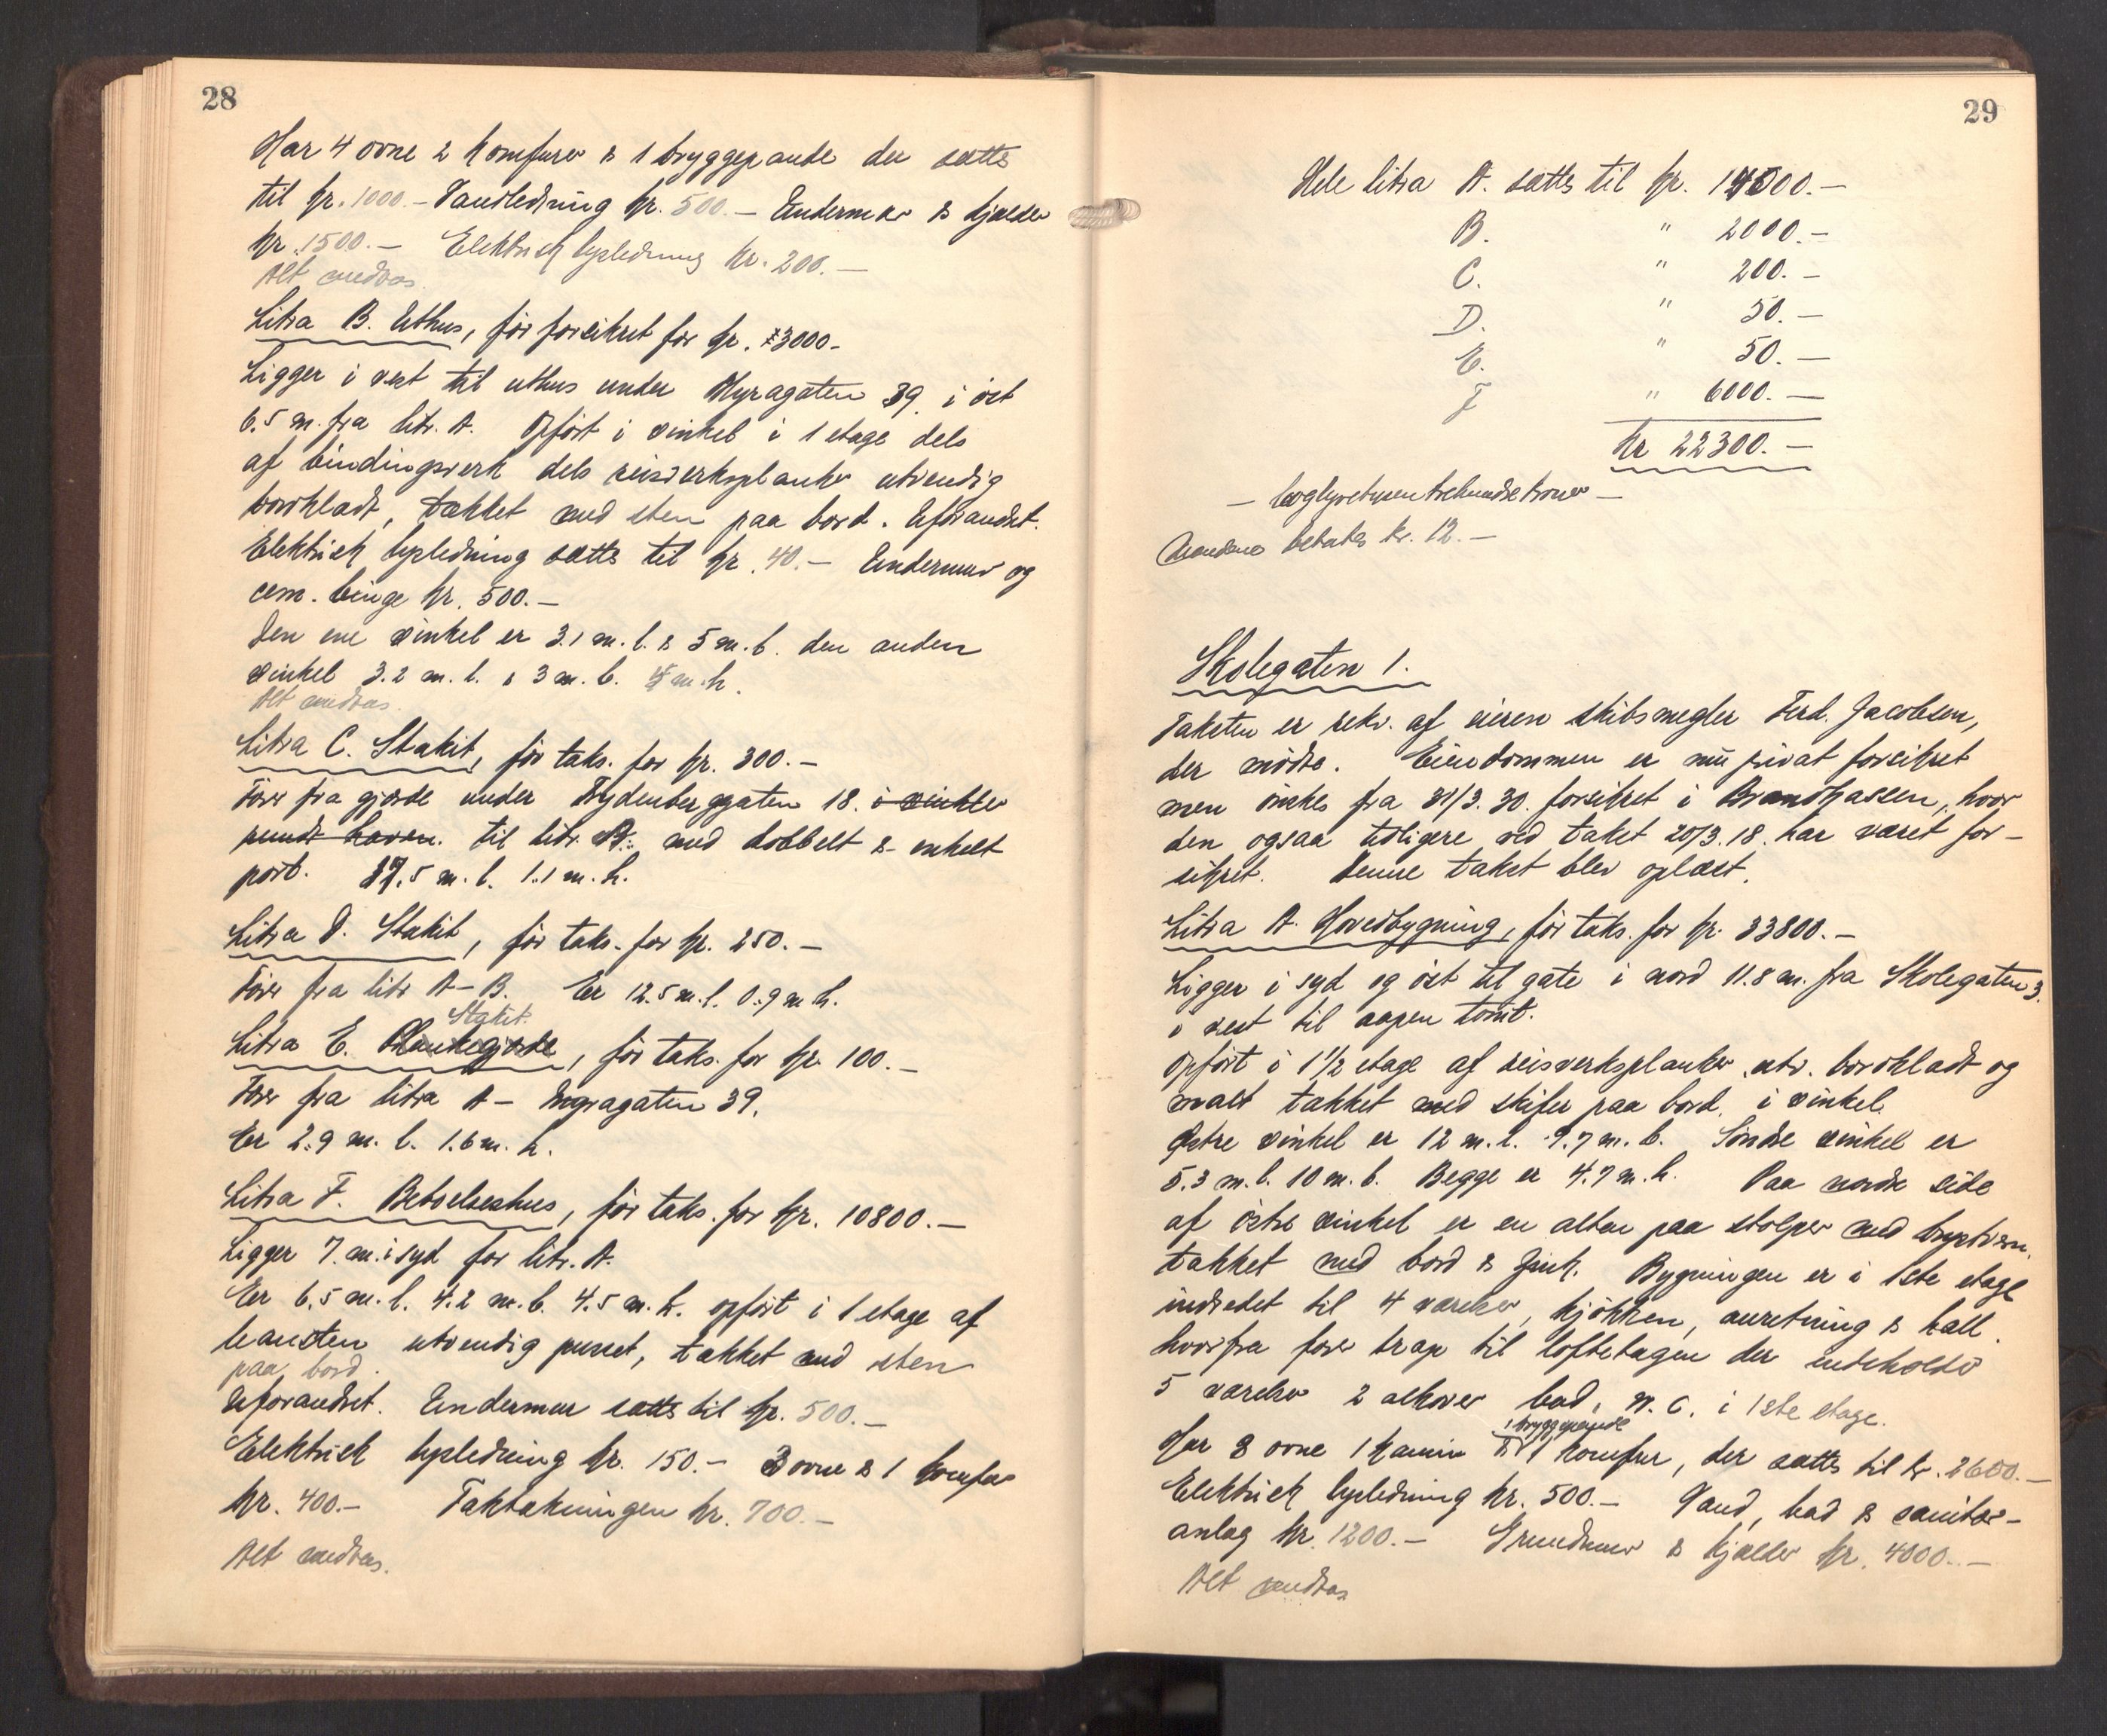 28
Har 4 ovne 2 komfurer & 1 bryggepande der sættes
til kr. 1000.- Vandledning kr. 500.- Undermur & kjælder
kr. 1500.- Elektrisk lysledning kr. 200.-
Alt medtas.
Litra B. Uthus, før forsikret for kr. 3000-
Ligger i vest til uthus under Myragaten 39. i øst
6.5 m. fra litr. A. Opført i vinkel i 1 etage dels
af bindingsverk dels reisverksplanker utvendig
bordklædt, tækket med sten paa bord. Uforandret.
Elektrisk lysledning sættes til kr. 40.- Undermur og
cem. binge kr. 500.-
Den ene vinkel er 3.1 m. l. & 5 m. b. den anden
vinkel 3.2 m. l. & 3 m. b. 4 m. h.
Alt medtas.
Litra C. Stakit, før taks. for kr. 300.-
Fører fra gjærde under Frydenberggaten 18. i vinkler
rundt haven. til litr. A. med dobbelt & enkelt
port. 37.5 m. l. 1.1 m. h.
Litra D. Stakit, før taks. for kr. 250.-
Fører fra litr A-B. Er 12.5 m. l. 0.9 m h.
Stakit.
Litra E. Plankegjærde, før taks. for kr. 100.-
Fører fra litra A - Myragaten 39.
Er 2.9 m. l. 1.6 m. h.
Litra F. Beboelseshus, før taks. for kr. 10800.-
Ligger 7. m. i syd for litr. A.
Er 6.5 m. l. 4.2 m. b. 4.5 m. h. opført i 1 etage af
leansten utvendig pusset, tækket med sten
paa bord.
Uforandret. Undermur sættes til kr. 500.-
Elektrisk lysledning kr. 150.- 3 ovne & 1 komfur
kr. 400.- Taktækningen kr. 700.-
Alt medtas.
29
Hele litra A. sættes til kr. 14500.-
B. " 2000.-
C. " 200.-
D. " 50.-
E. " 50.-
F " 6000.-
kr 22300.-
- togtyvetusentrehundre kroner -
Mændene betales kr. 12.-
Skolegaten 1.
Taksten er rekv. af eieren skibsmegler Ferd. Jacobsen,
der mødte. Eiendommen er nu privat forsikret
men ønskes fra 31/3. 30. forsikret i Brandkassen, hvor
den ogsaa tidligere ved takst 20/3. 18. har været for-
sikret. Denne takst blev oplæst.
Litra A. Hovedbygning, før taks. for kr. 33800.-
Ligger i syd og øst til gate i nord 11.8 m. fra Skolegaten 3.
i vest til aapen tomt.
Opført i 1 1/2 etage af reisverksplanker utv. bordklædt og
malt tækket med skifer paa bord. i vinkel.
Østre vinkel er 12 m. l. 9.7 m. b. Søndre vinkel er
5.3 m. l. 10 m. b. Begge er 4.7 m. h. Paa nordre side
af østre vinkel er en altan paa stolper med brystvern.
tækket med bord & zink. Bygningen er i 1ste etage
indredet til 4 værelser, kjøkken, anretning & hall.
hvorfra fører trap til loftetagen der indeholder
5 værelser 2 alkover bad, W. C. i 1ste etage.
1 bryggepande
Har 8 ovne 1 kamin & 1 komfur, der sættes til kr. 2600.-
Elektrisk lysledning kr. 500.- Vand, bad & sanitær-
anlæg kr. 1200.- Grundmur & kjælder kr. 4000.-
Alt medtas